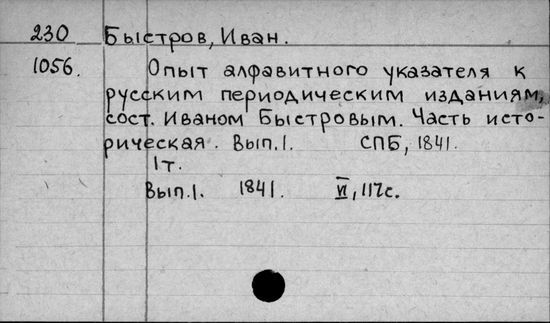 230 Быстров, Иван.
1056. Опыт алфавитного указателя к
русским периодическим изданиям,
сост. Иваном Быстровым. Часть исто-
рическая. Вып.1. СПБ, 1841.
1т.
Вып.1. 1841. VI, 117с.